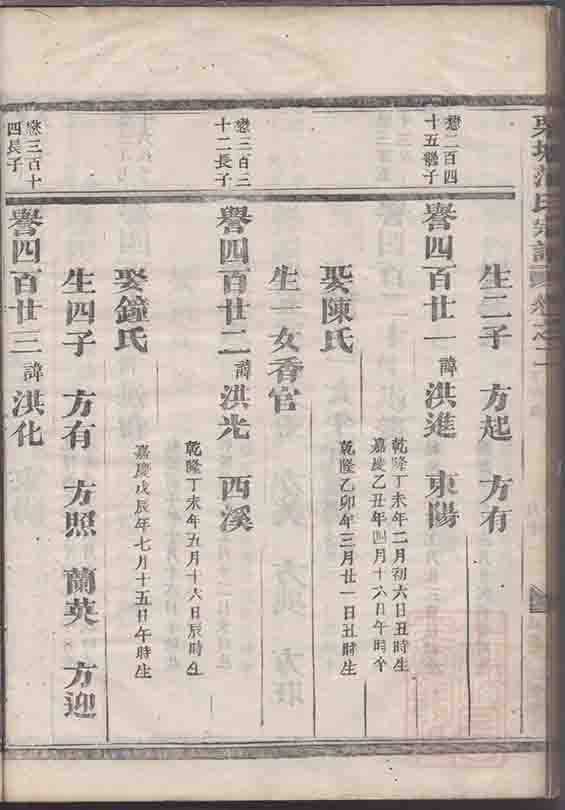 氏宗譜
卷之二
生二子　方起　方有
懋二百四
十五繼子
譽四百廿一　諱洪進　東陽
乾隆丁未年二月初六日丑時生
嘉慶乙丑年四月十六日午時卒
娶陳氏
乾隆乙卯年三月廿一日丑時生
生一女香官
懋三百三
十二長子
譽四百廿二　諱洪光　西溪
乾隆丁未年五月十六日辰時生
娶鐘氏
嘉慶戊辰年七月十五日午時生
生四子　方有　方照　蘭英　方迎
懋三百十
四長子
譽四百廿三　諱洪化